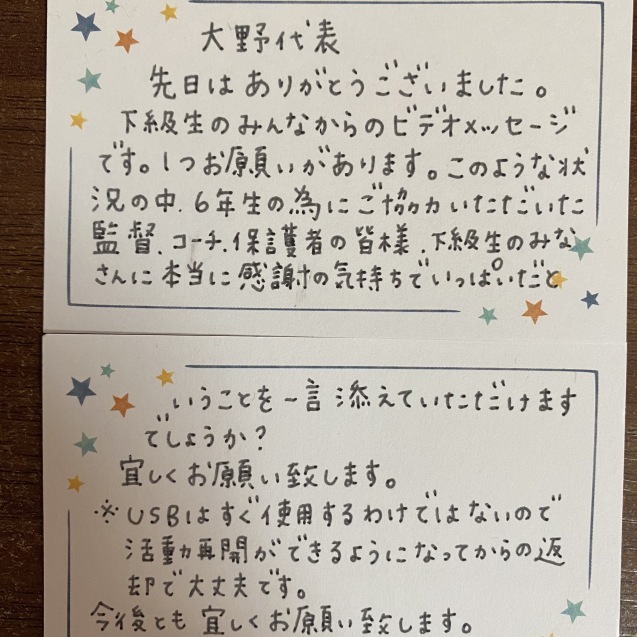 大野代表
先日はありがとうございました。
下級生のみんなからのビデオメッセージ
です。1つお願いがあります。このような状
況の中、6年生の為にご協力いただいた
監督、コーチ、保護者の皆様、下級生のみな
さんに本当に感謝の気持ちでいっぱいだと
いうことを一言添えていただけます
でしょうか?
宜しくお願い致します。
※USBはすぐ使用するわけではないので
活動再開ができるようになってからの返
却で大丈夫です。
今後とも宜しくお願い致します。